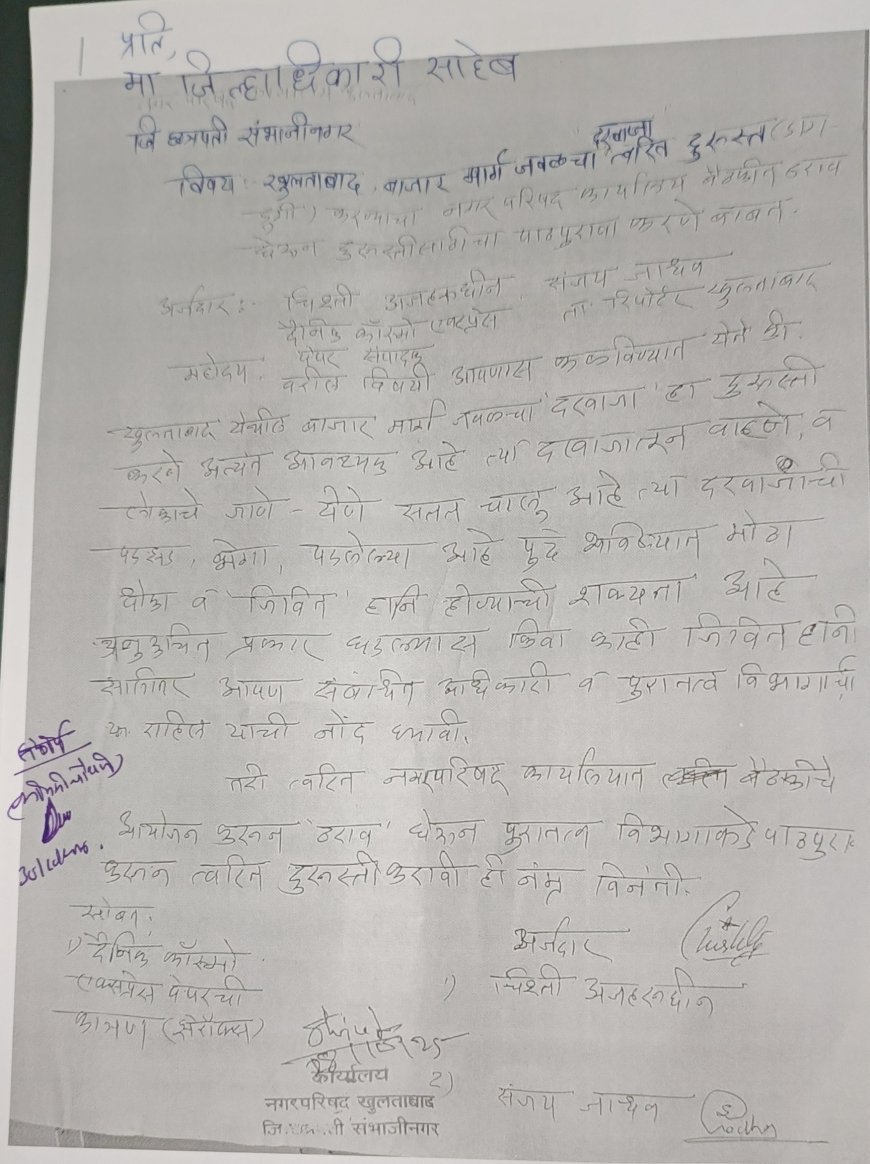 प्रति,
मा जिल्हाधिकारी साहेब
जि छत्रपती संभाजीनगर
दरवाजा
विषय: खुलताबाद, बाजार मार्ग जवळचा त्वरित दुरुस्त (डाग
डुगी) करण्याचा नगर परिषद कार्यालय बैठकीत ठराव
घेऊन दुरुस्तीसाठीचा पाठपुरावा करणे बाबत.
अर्जदार :- चिश्ती अजहरुद्दीन, संजय जाधव
दैनिक कॉस्मो एक्सप्रेस ता. रिपोर्टर खुलताबाद
पेपर संपादक
महोदय: वरील विषयी आपणास कळविण्यात येते की.
खुलताबाद येथील बाजार मार्ग जवळचा 'दरवाजा' हा दुरुस्ती
करणे अत्यंत आवश्यक आहे त्या दरवाजातून वाहने, व
लोकाचे जाणे - येणे सतत चालू आहे त्या दरवाजाची
पडझड, भेगा, पडलेल्या आहे पुढे भविष्यात मोठा
धोका व 'जिवित' हानि होण्याची शक्यता आहे
अनुउचित प्रकार घडल्यास किंवा काही जिवित हानी
आपण संबंधित अधिकारी व पुरातत्व विभागाची
राहिल याची नोंद घ्यावी.
तरी त्वरित नगरपरिषद कार्यालयात बैठकीचे
आयोजन करून 'ठराव' घेऊन पुरातत्व विभागाकडे पाठपुरा
करून त्वरित दुरुस्ती करावी ही नंम्र विनंती.
सोबत:
१) दैनिक कॉस्मो
एक्सप्रेस पेपरची
कात्रण (झेरॉक्स)
अर्जदार
१) चिश्ती अजहरुद्दीन
कार्यालय
नगरपरिषद खुलताबाद
जि. संभाजीनगर
2) संजय जाधव